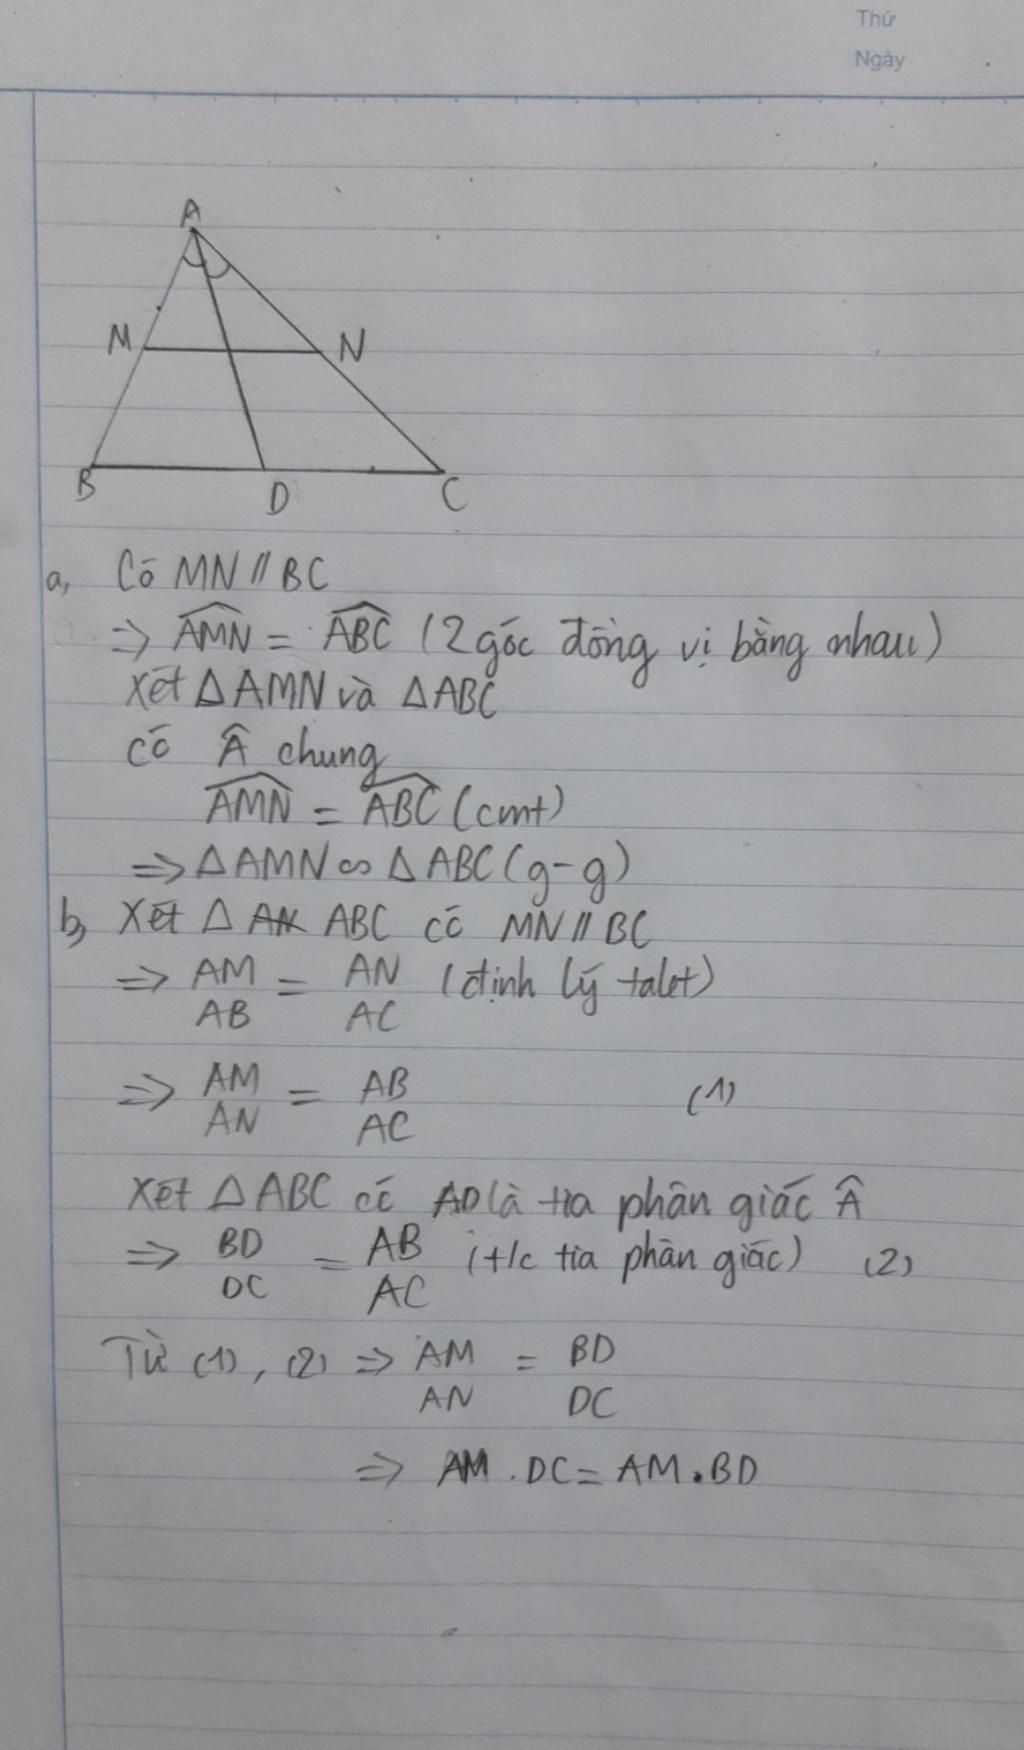 Thứ
Ngày
A
M N
B D C
a, Có MN // BC
=> AMN = ABC (2 góc đồng vị bằng nhau)
Xét △AMN và △ABC
có Â chung
AMN = ABC (cmt)
=> △AMN ∽ △ABC (g-g)
b, Xét △ ABC có MN // BC
=> AM/AB = AN/AC (định lý talet)
=> AM/AN = AB/AC (1)
Xét △ABC có AD là tia phân giác Â
=> BD/DC = AB/AC (t/c tia phân giác) (2)
Từ (1), (2) => AM/AN = BD/DC
=> AM . DC = AM . BD